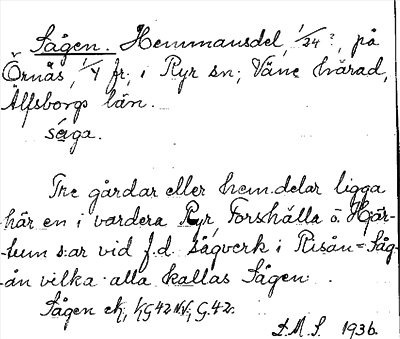 Sågen. Hemmansdel, 1/24?, på
Örnäs, 1/4 fr, i Ryr sn; Väne härad,
Älfsborgs län.
såga.
Tre gårdar eller hem.delar ligga
här en i vardera Ryr, Forshälla o. Hjär-
-tum s:ar vid f.d. sågverk i Risån = Såg-
-ån vilka alla kallas Sågen.
Sågen ek, G.42.
D.M.S. 1936.